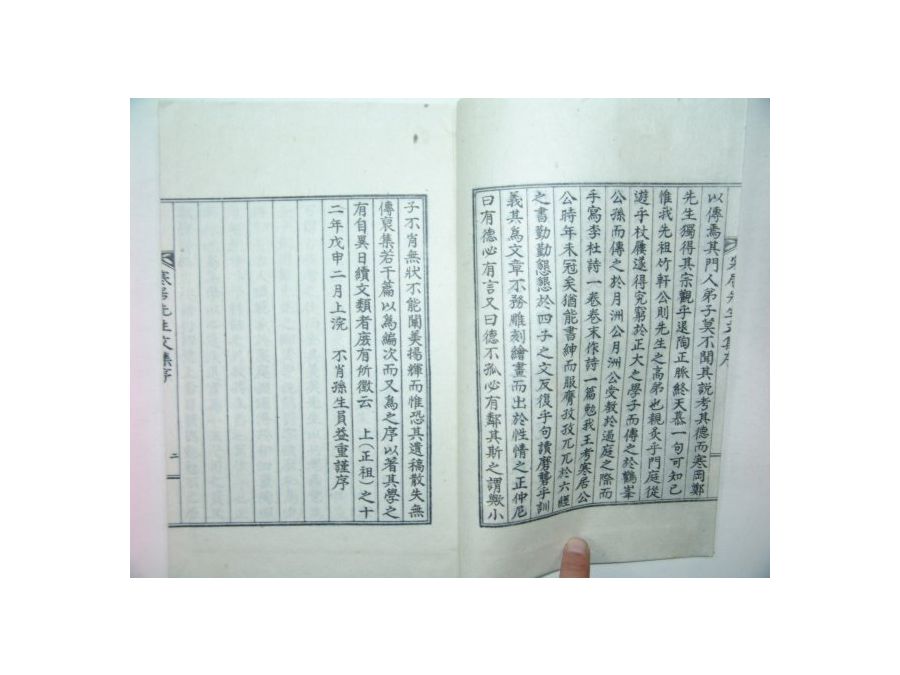 以傳焉其門人弟子莫不聞其説考其德而寒岡鄭
先生獨得其宗觀乎退陶正脈終天慕一句可知已
惟我先祖竹軒公則先生之高弟也親炙乎門庭從
遊乎杖屨遂得究窮於正大之學子而傳之於鶴峯
公孫而傳之於月洲公月洲公受教於過庭之際而
手寫李杜詩一卷卷末作詩一篇勉我王考寒居公
公時年未冠矣猶能書紳而服膺孜孜兀兀於六經
之書勤勤懇懇於四子之文反復乎句讀磨礱乎訓
義其為文章不務雕刻繪畫而出於性情之正仲尼
曰有德必有言又曰德不孤必有鄰其斯之謂歟小
子不肖無狀不能闡美揚輝而惟恐其遺稿散失無
傳裒集若干篇以為編次而又為之序以著其學之
有自異日續文類者庶有所徵云 上(正祖)之十
二年戊申二月上浣 不肖孫生員益重謹序
寒居先生文集序
二